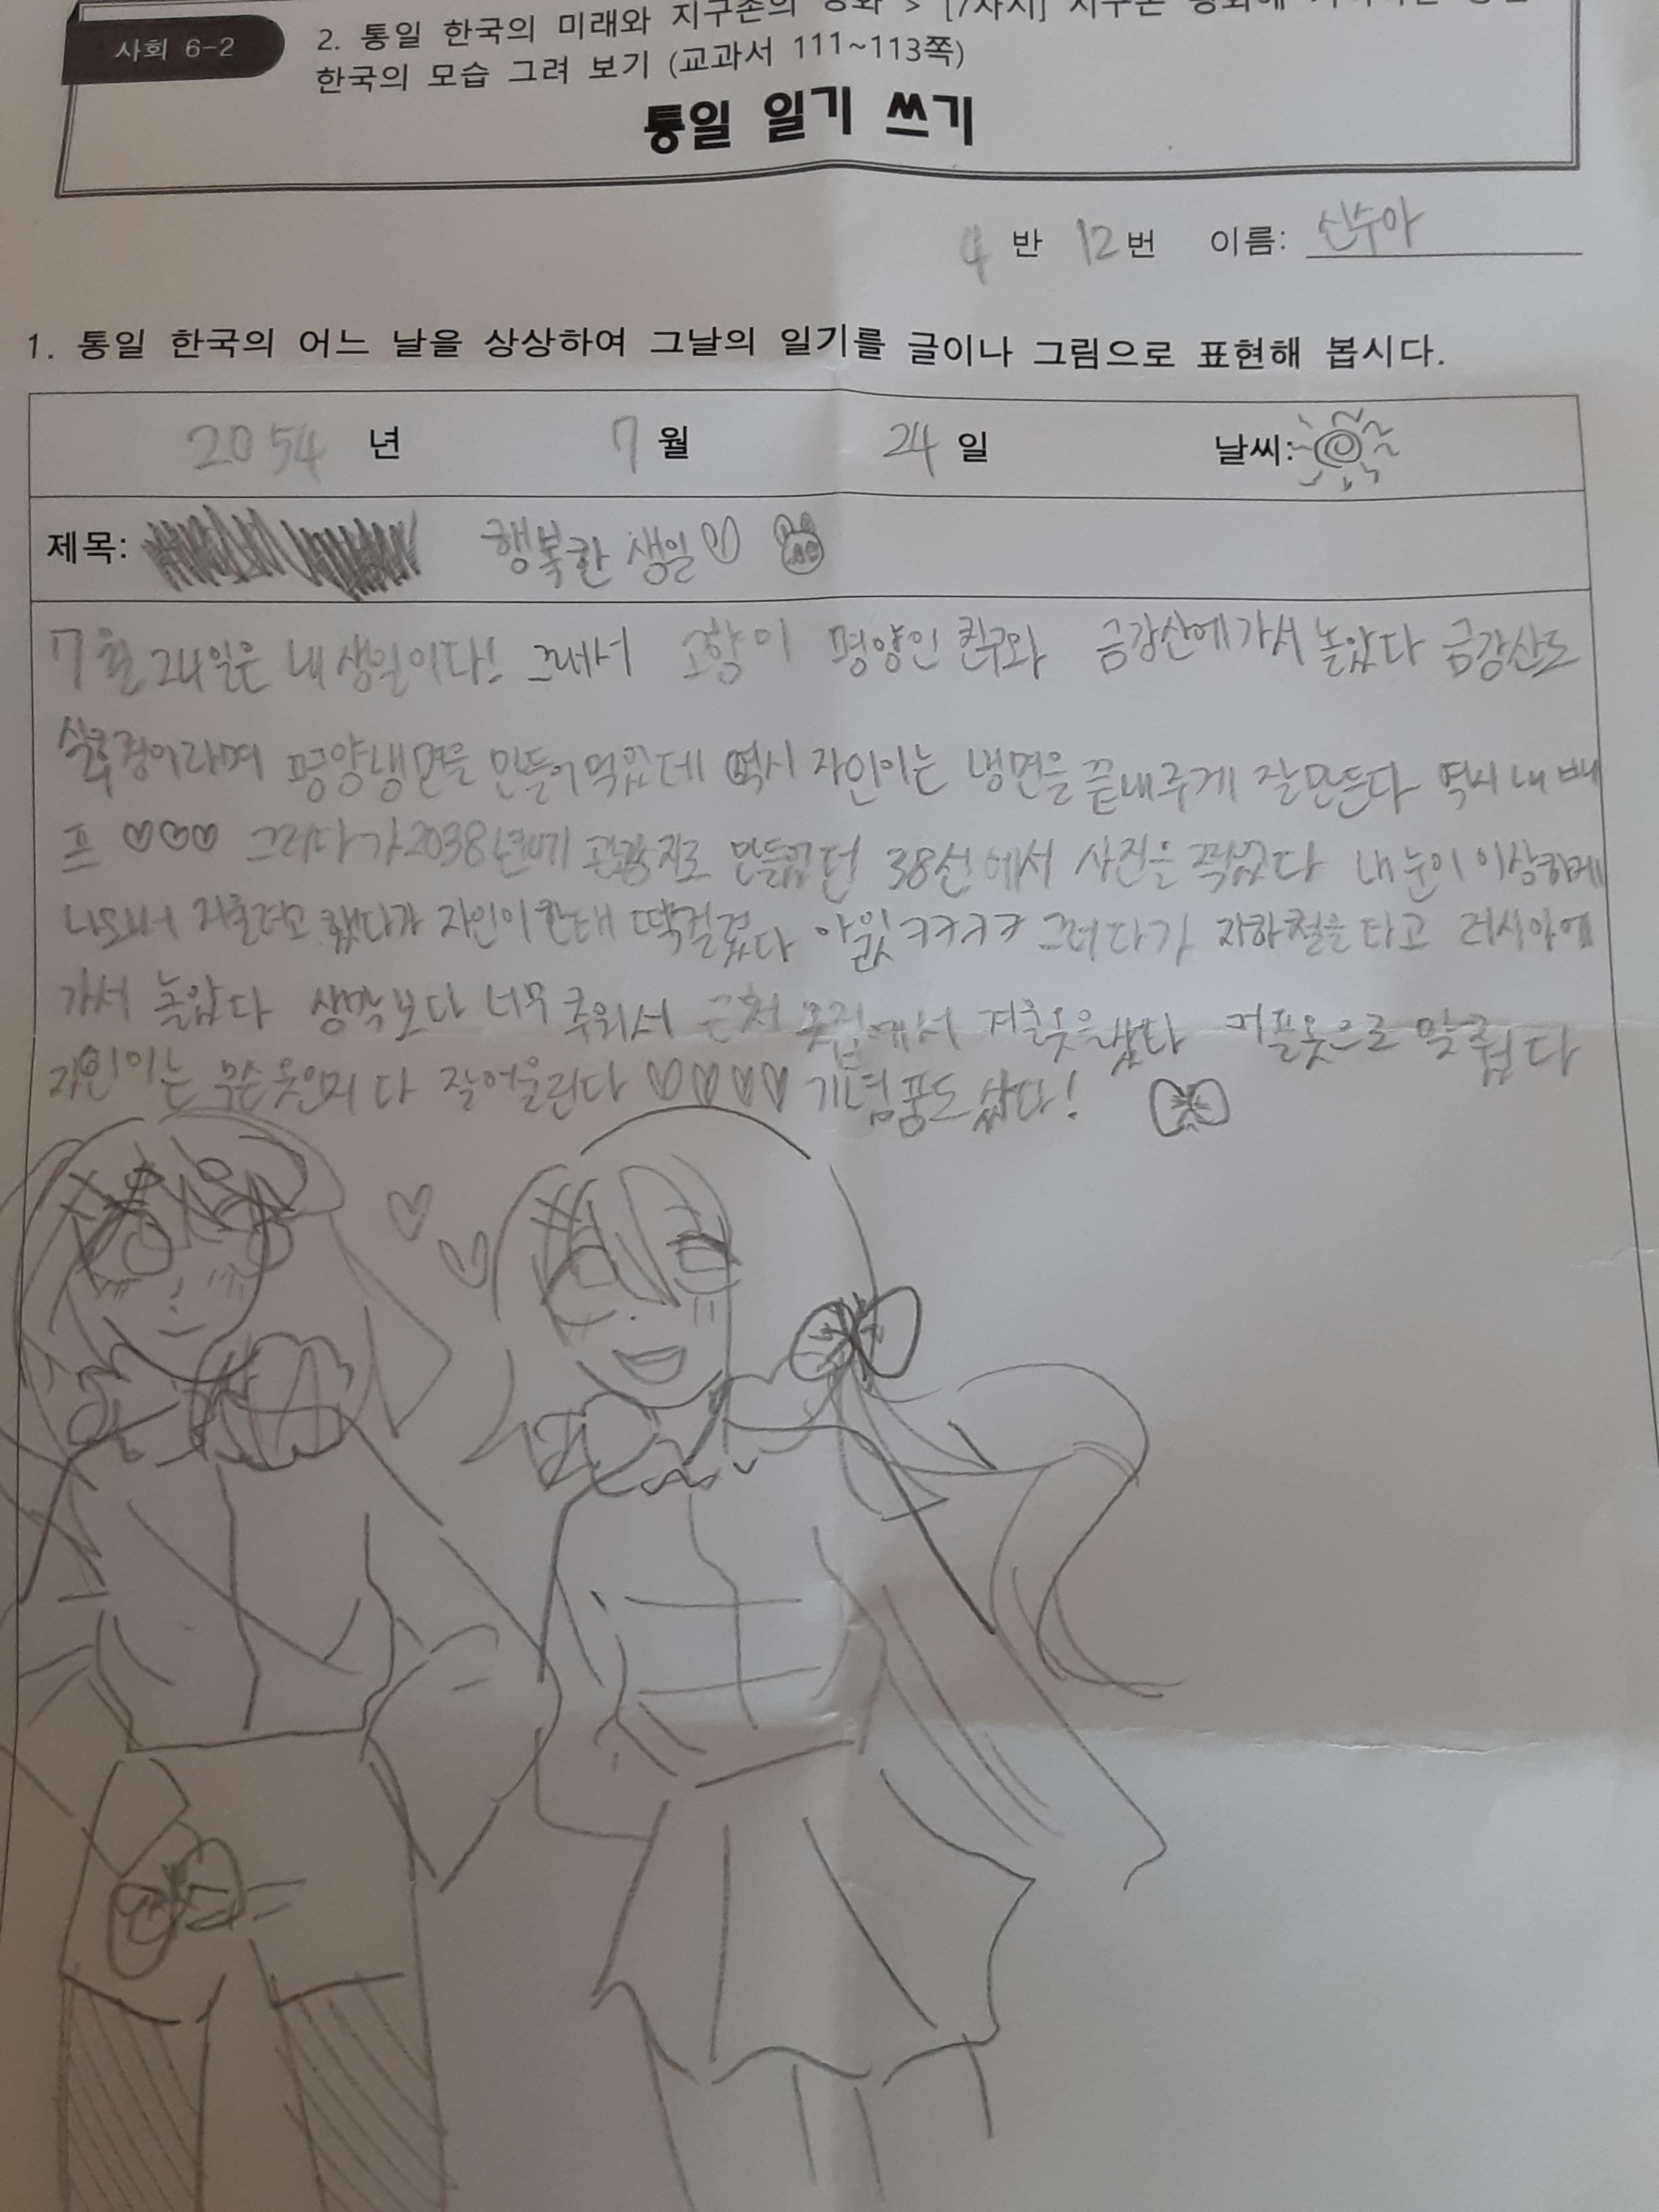 사회 6-2
2. 통일 한국의 미래와 지구촌의 평화 > [7차시]
한국의 모습 그려 보기 (교과서 111~113쪽)
통일 일기 쓰기
4 반 12번 이름: 신수아
1. 통일 한국의 어느 날을 상상하여 그날의 일기를 글이나 그림으로 표현해 봅시다.
2054 년 7 월 24 일 날씨:
제목: 행복한 생일♡
7월 24일은 내 생일이다! 그래서 고향이 평양인 친구와 금강산에 가서 놀았다 금강산도
식후경이라며 평양냉면을 만들어 먹었는데 역시 자인이는 냉면을 끝내주게 잘만든다 역시 내 베
프 ♡♡♡ 그러다가 2038년에 관광지로 만들었던 38선에서 사진을 찍었다 내 눈이 이상하게
나와서 지울려고 했다가 자인이한태 딱걸렸다 아윐ㅋㅋㅋㅋ 그러다가 지하철을 타고 러시아에
가서 놀았다 생각보다 너무 추워서 근처 옷집에서 겨울옷을 샀다 커플옷으로 맞췄다
자인이는 무슨옷인지 다 잘어울린다 ♡♡♡♡ 기념품도 샀다!